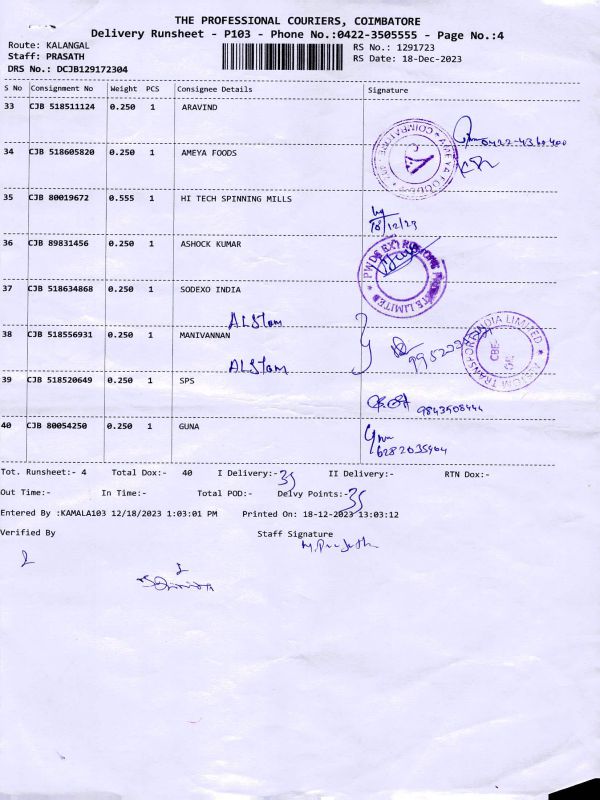 THE PROFESSIONAL COURIERS, COIMBATORE
Delivery Runsheet - P103 - Phone No.:0422-3505555 - Page No.:4
Route: KALANGAL RS No.: 1291723
Staff: PRASATH RS Date: 18-Dec-2023
DRS No.: DCJB129172304
S No Consignment No Weight PCS Consignee Details Signature
33 CJB 518511124 0.250 1 ARAVIND
34 CJB 518605820 0.250 1 AMEYA FOODS
35 CJB 80019672 0.555 1 HI TECH SPINNING MILLS
18/12/23
36 CJB 89831456 0.250 1 ASHOCK KUMAR
37 CJB 518634868 0.250 1 SODEXO INDIA
ALStom
38 CJB 518556931 0.250 1 MANIVANNAN
ALStom
39 CJB 518520649 0.250 1 SPS
9843508444
40 CJB 80054250 0.250 1 GUNA
6282035904
Tot. Runsheet:- 4 Total Dox:- 40 I Delivery:- 35 II Delivery:- RTN Dox:-
Out Time:- In Time:- Total POD:- Delvy Points:- 35
Entered By :KAMALA103 12/18/2023 1:03:01 PM Printed On: 18-12-2023 13:03:12
Verified By Staff Signature